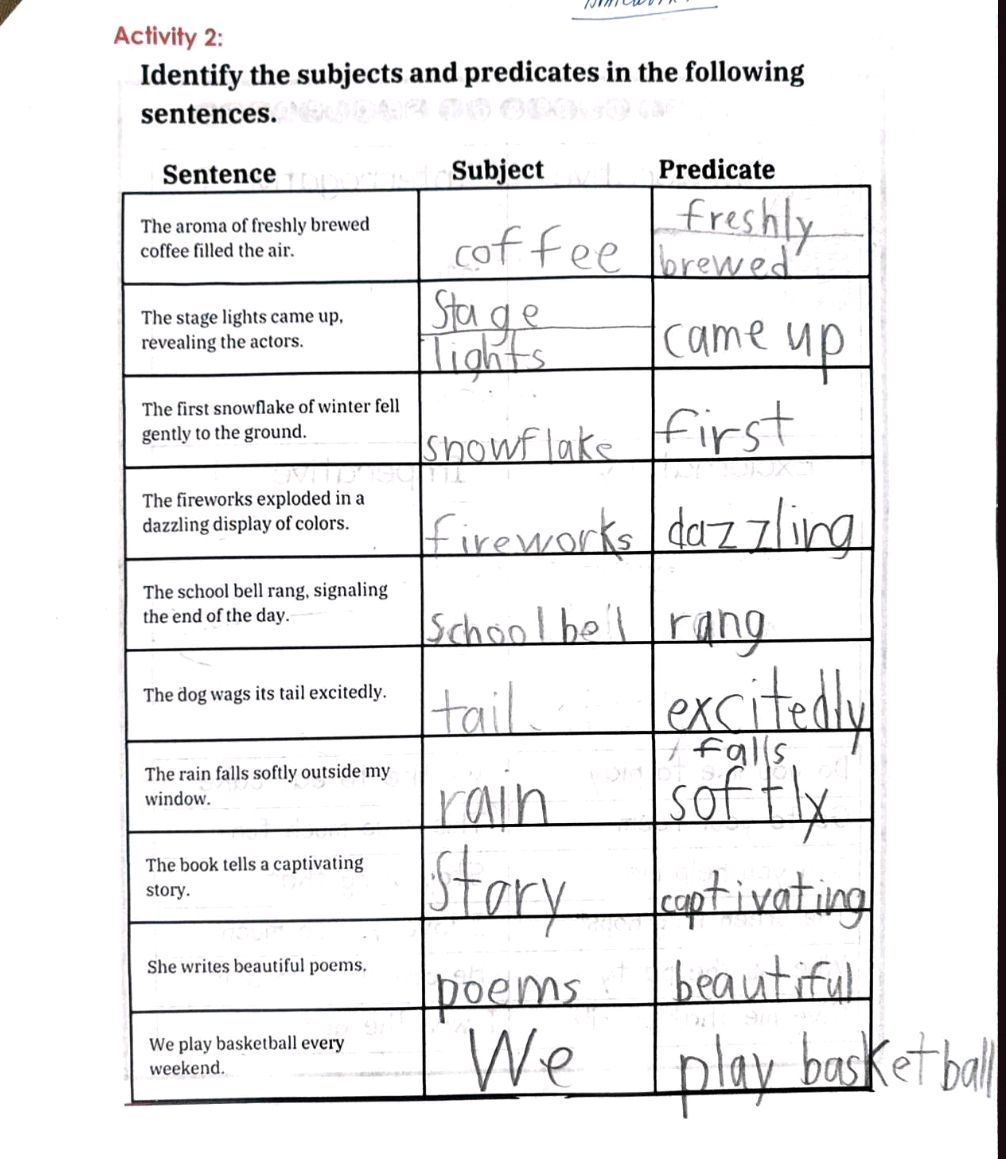 Activity 2:
Identify the subjects and predicates in the following
sentences.
Sentence Subject Predicate
The aroma of freshly brewed
coffee filled the air.
coffee
freshly
brewed
The stage lights came up,
revealing the actors.
Stage
lights
came up
The first snowflake of winter fell
gently to the ground.
snowflake
first
The fireworks exploded in a
dazzling display of colors.
fireworks
dazzling
The school bell rang, signaling
the end of the day.
School bell
rang
The dog wags its tail excitedly.
tail
excitedly
The rain falls softly outside my
window.
rain
falls
softly
The book tells a captivating
story.
Story
captivating
She writes beautiful poems.
poems
beautiful
We play basketball every
weekend.
We
play basketball